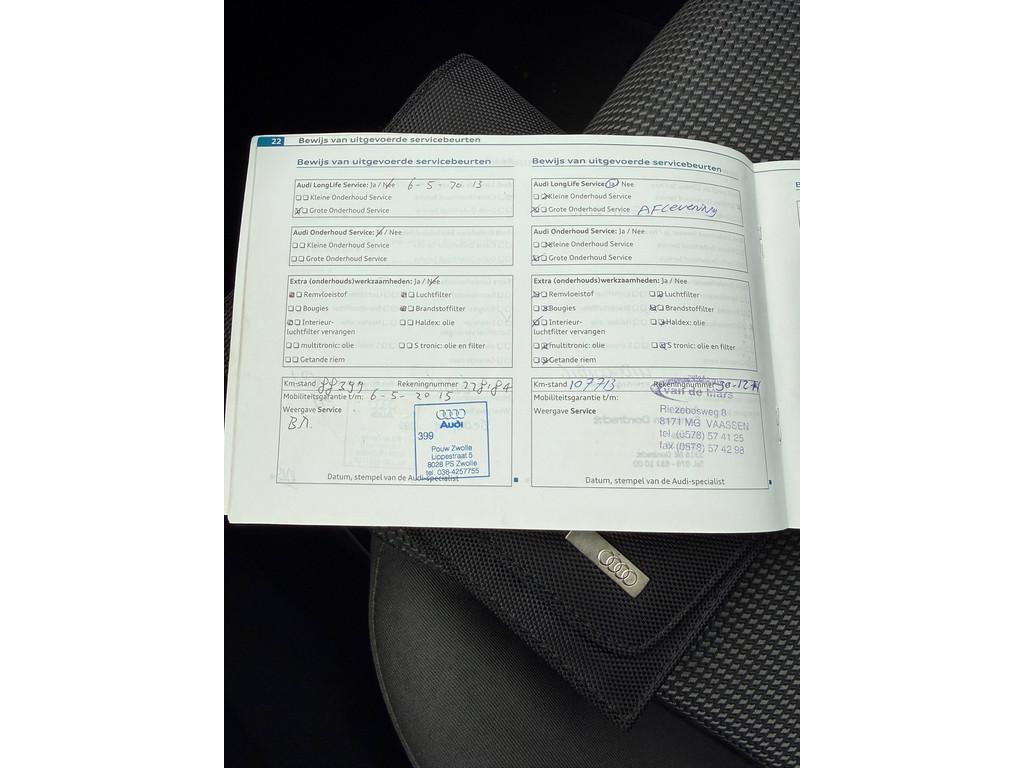 22 Bewijs van uitgevoerde servicebeurten
Bewijs van uitgevoerde servicebeurten
Audi LongLife Service: Ja / Nee 6-5-2013
Kleine Onderhoud Service
Grote Onderhoud Service
Audi Onderhoud Service: Ja / Nee
Kleine Onderhoud Service
Grote Onderhoud Service
Extra (onderhouds)werkzaamheden: Ja / Nee
Remvloeistof Luchtfilter
Bougies Brandstoffilter
Interieur- Haldex: olie
luchtfilter vervangen
multitronic: olie S tronic: olie en filter
Getande riem
Km-stand 88399 Rekeningnummer 228184
Mobiliteitsgarantie t/m: 6-5-2015
Weergave Service
Audi
399
Pouw Zwolle
Lippestraat 5
8028 PS Zwolle
tel. 038-4257755
Datum, stempel van de Audi-specialist
Bewijs van uitgevoerde servicebeurten
Audi LongLife Service: Ja / Nee
Kleine Onderhoud Service
Grote Onderhoud Service AFLEVERING
Audi Onderhoud Service: Ja / Nee
Kleine Onderhoud Service
Grote Onderhoud Service
Extra (onderhouds)werkzaamheden: Ja / Nee
Remvloeistof Luchtfilter
Bougies Brandstoffilter
Interieur- Haldex: olie
luchtfilter vervangen
multitronic: olie S tronic: olie en filter
Getande riem
Km-stand 107713 Rekeningnummer 30-12-14
Mobiliteitsgarantie t/m:
van de Mars
Weergave Service
Riezebosweg 8
8171 MG VAASSEN
tel. (0578) 57 41 25
fax (0578) 57 42 98
Datum, stempel van de Audi-specialist